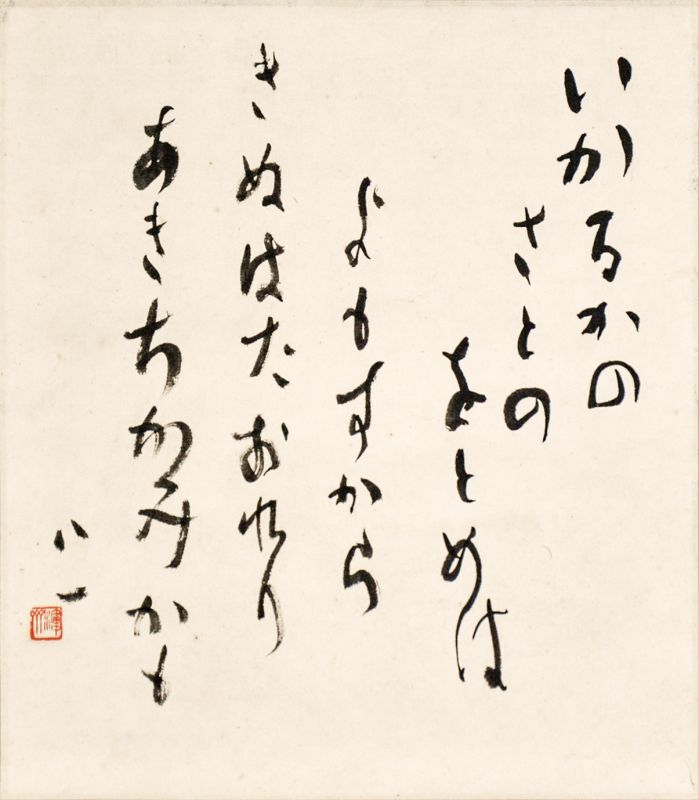 いかるかの
さとの
をとめは
よもすから
きぬはたおれり
あきちかみかも
八一